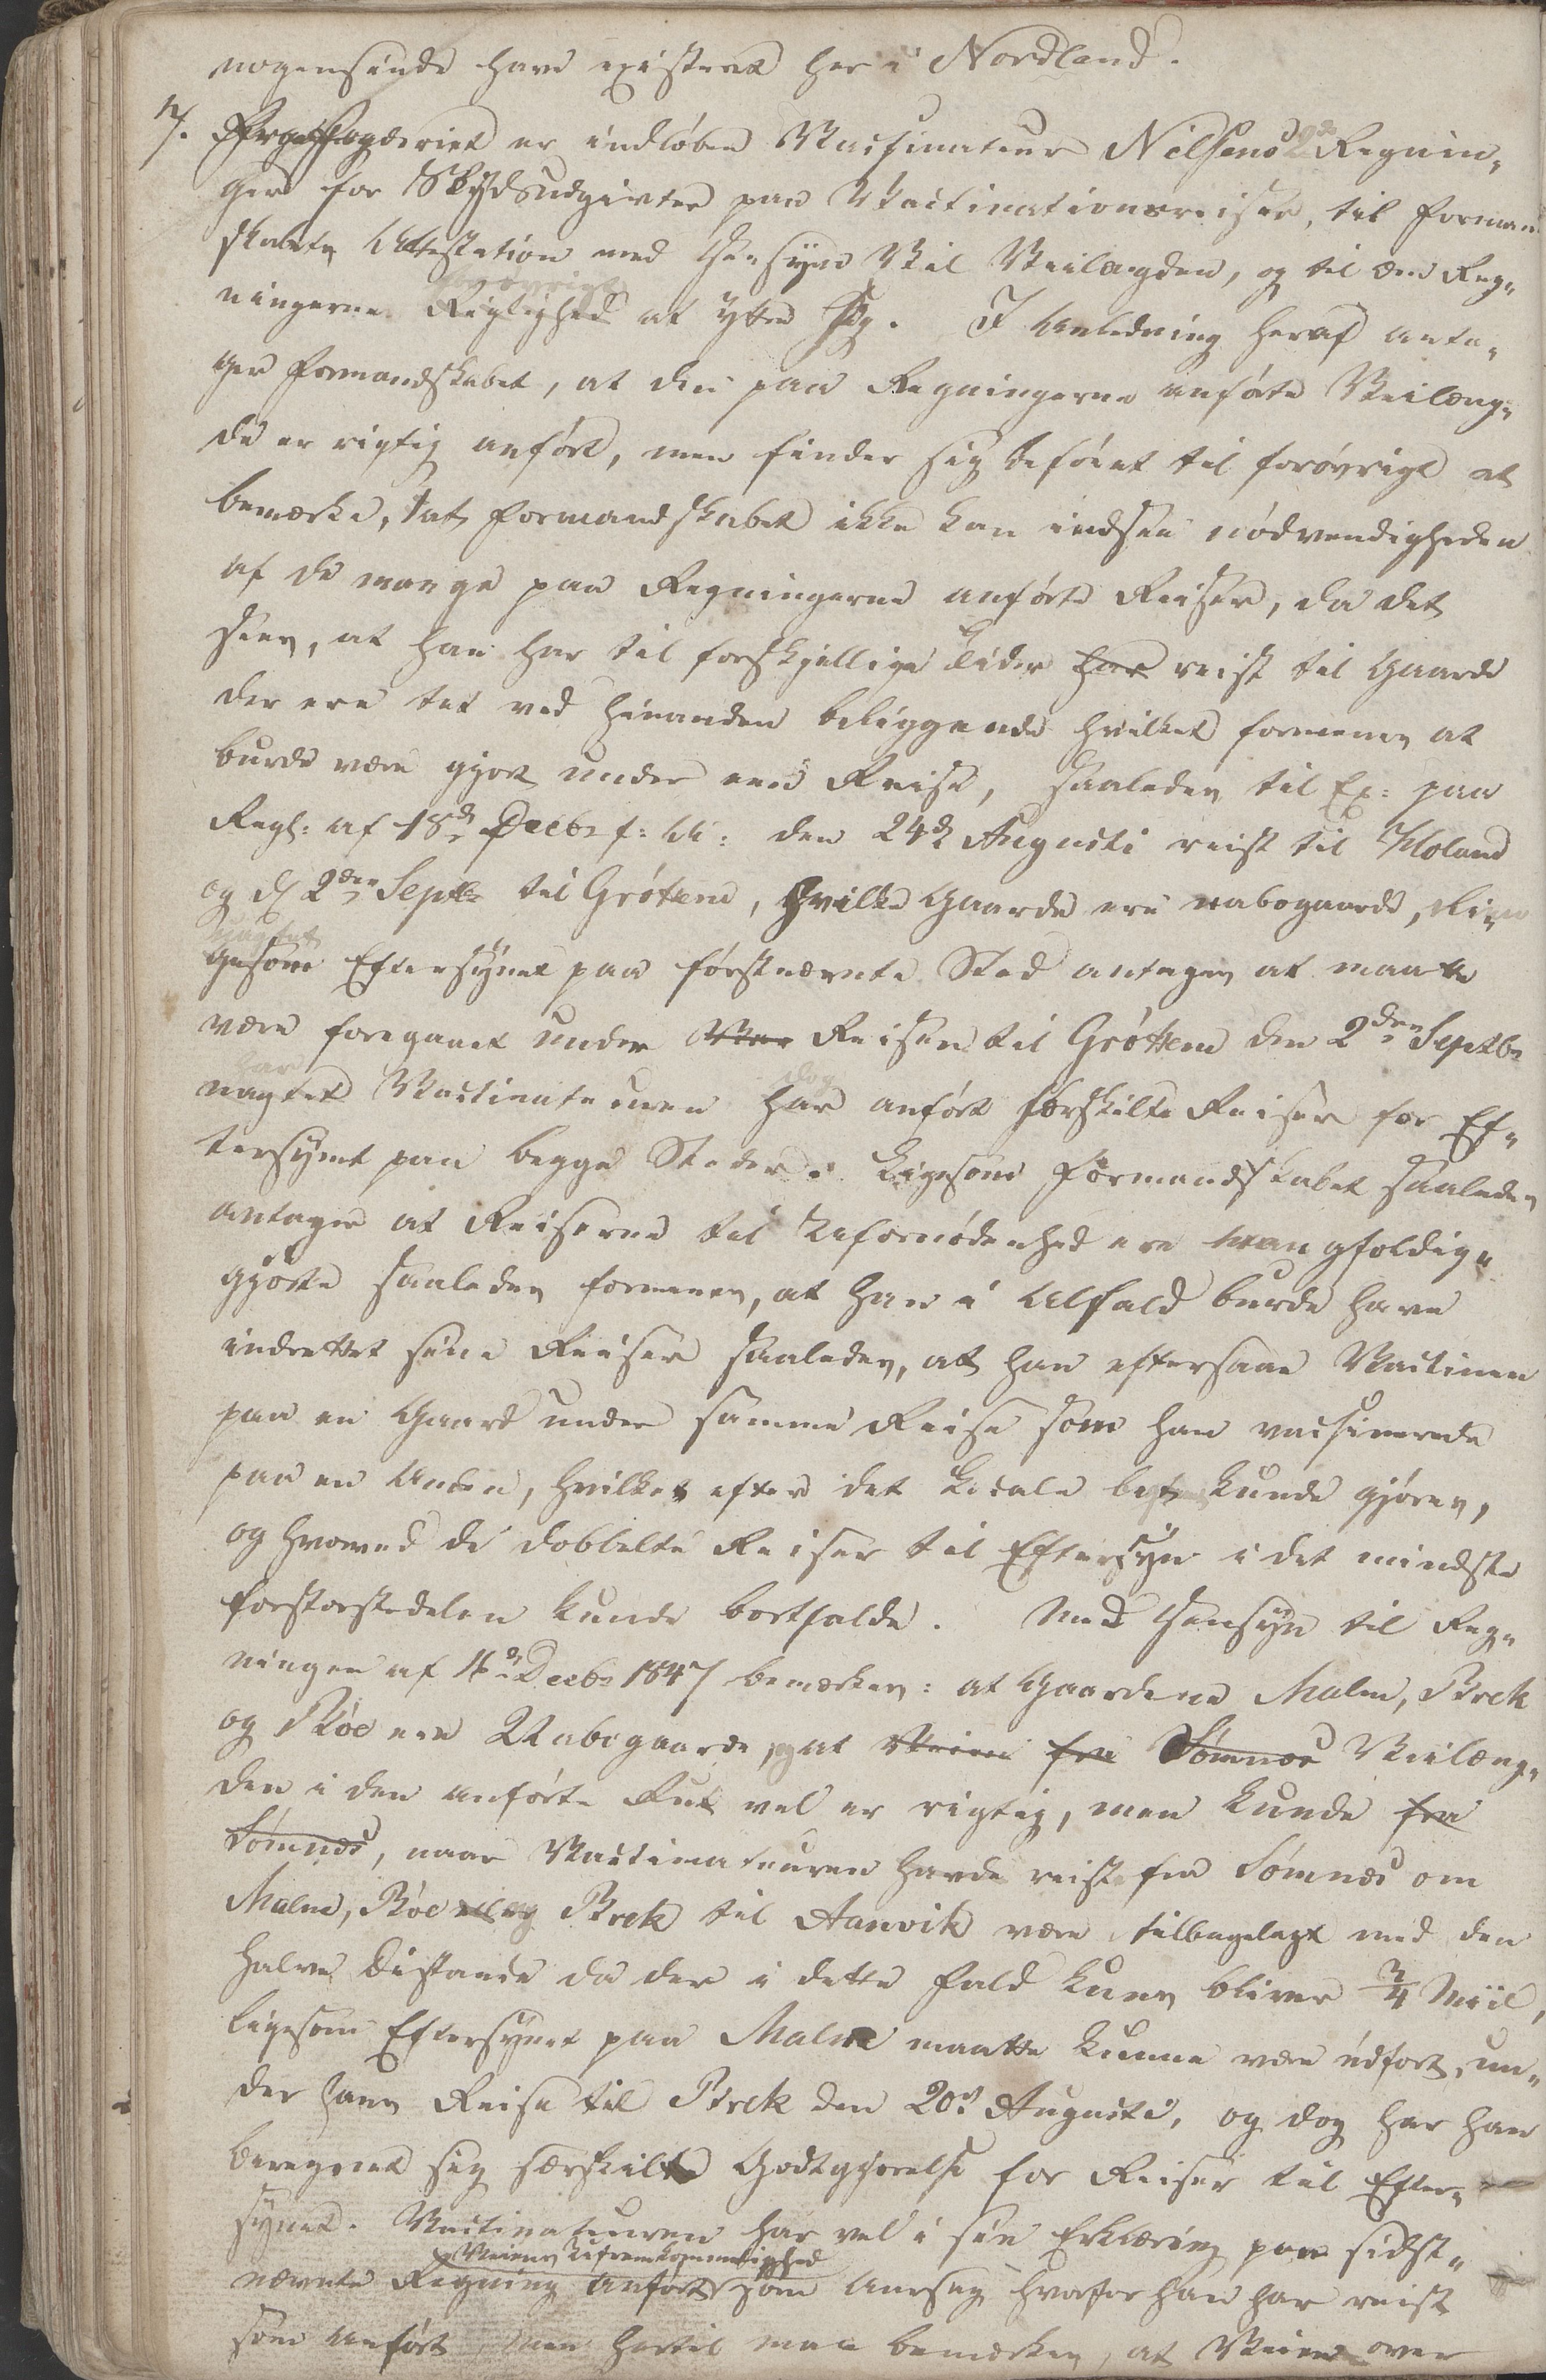 nogensinde have existeret her i Nordland.
7. Fra Fogderiet er indløben Vaccinateur Nilsens 2de Regnin„
ger for Skydsudgivter paa Vaccinationsreiser, til Formand
skabets Attestation med Hensyn til Veilængden, og til om Reg„
forøvrigt
ningernes Rigtighed at yttre sig. I Anledning heraf anta„
ger Formandskabet, at den paa Regningerne anførte Veilæng„
de er rigtig anført, men finder sig beføiet til forøvrigt at
bemærke, at Formandskabet ikke kan indsee nødvendigheden
af de mange paa Regningerne anførte Reiser, da det
sees, at han har til forskjellige Tider har reist til Gaarde
der ere tet ved hinanden beliggende hvilket formenes at
burde være gjort under een Reise, saaledes til Ex: paa
Regn: af 18de Decbr f: A: den 24de Augusti reist til Moland
og d 2den Septbr til Grøttem, hvilke Gaarde ere nabogaarde, lige
uagtet
gesom Eftersynet paa førstnævnte Sted antages at maatte
være foregaaet under Reisen til Grøttem den 2den Septbr
har
uagtet Vaccinateuren har dog anført særskilte Reiser for Ef„
tersynet paa begge Steder. Ligesom Formandskabet saaledes
antager at Reiserne til Ufornødenhed ere mangfoldig„
gjorte saaledes formenes, at han i Alfald burde have
indrettet sine Reiser saaledes, at han eftersaae Vaccinen
paa en Gaard under samme Reise som han vaccinerede
paa en Anden, hvilket efter det Locale bestemt kunde gjøres,
og hvorved de dobbelte Reiser til Eftersyn i det mindste
forstørstedelen kunde bortfalde. Med Hensyn til Reg„
ningen af 4de Decbr 1847 bemærkes: at Gaardene Malm, Brek
og Røe ere Nabogaarde, og at Veien fra Sømnæs Veilæng„
den i den anførte Rut vel er rigtig, men kunde fra
Sømnæs, naar Vaccinateuren havde reist fra Sømnæs om
Malm, Røe og Brek til Aanvik være tilbagelagt med den
halve Distance da der i dette Fald kuns bliver 3/4 Miil,
ligesom Eftersynet paa Malm maatte kunne være udført un„
der hans Reise til Brek den 20de Augusti, og dog har han
beregnet sig særskilte Godtgjørelse for Reiser til Efter„
synet. Vaccinateuren har vel i sin Erklæring paa sidst„
Veiens Ufremkommelighed
nævnte Regning anført som Aarsag hvorfor han har reist
som Anført, men hertil maa bemærkes, at Veien over